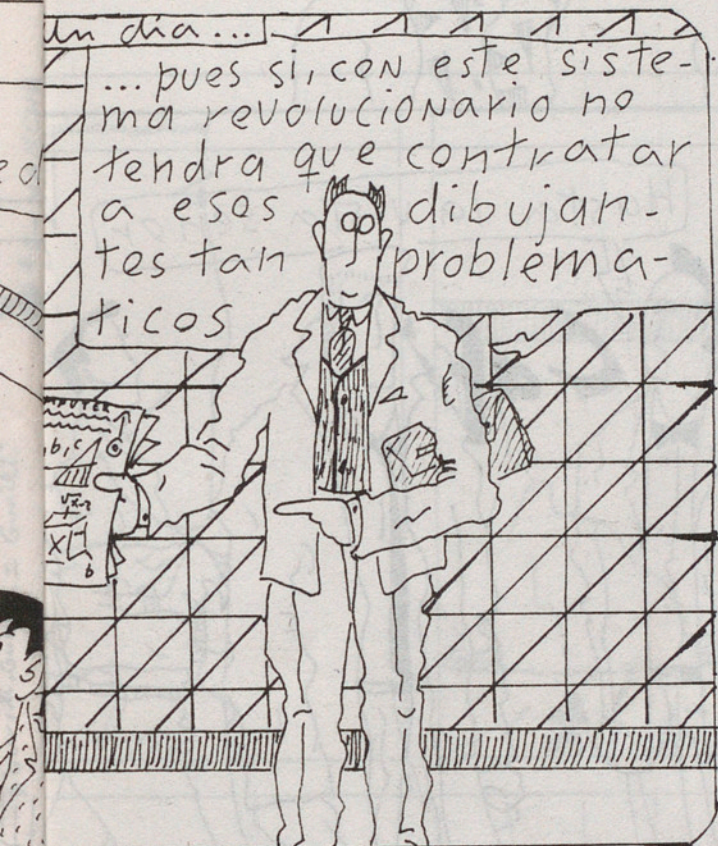 Un dia...
...pues si, con este siste-
ma revolucionario no
tendra que contratar
a esos dibujan-
tes tan problema-
ticos
b, c
X
b